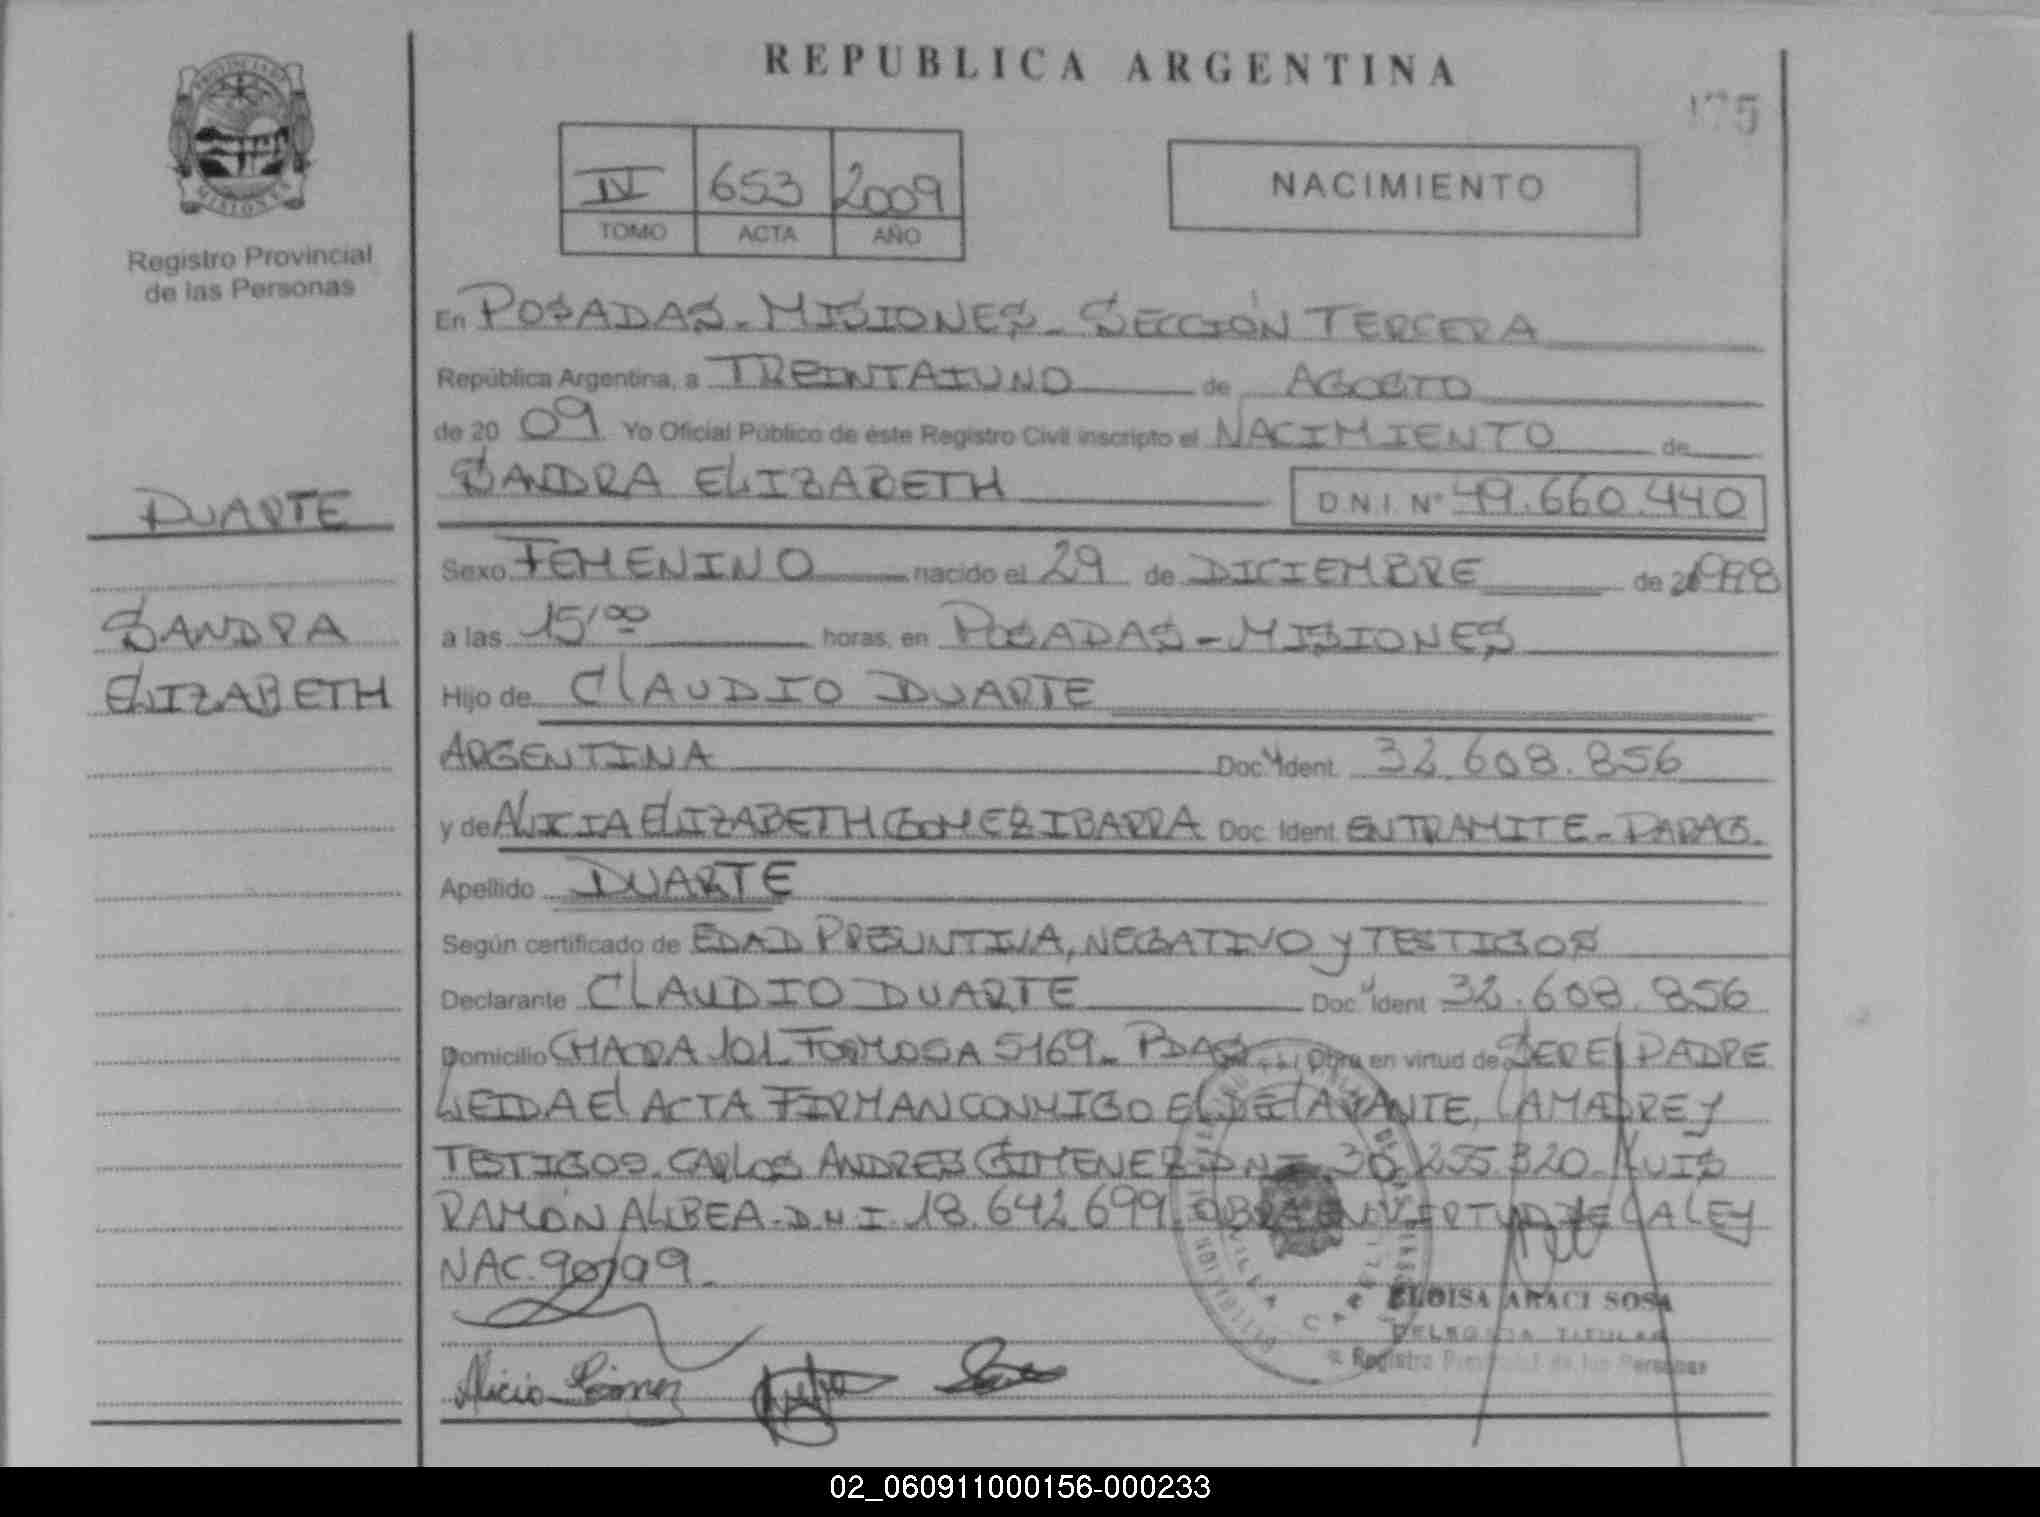 REPUBLICA ARGENTINA
175
PROVINCIA DE
MISIONES
Registro Provincial
de las Personas
IV 653 2009
TOMO ACTA AÑO
NACIMIENTO
En POSADAS - MISIONES - SECCIÓN TERCERA
República Argentina, a TREINTAIUNO de AGOSTO
de 20 09 Yo Oficial Público de éste Registro Civil inscripto el NACIMIENTO de
SANDRA ELIZABETH D.N.I. Nº 49.660.440
DUARTE
SANDRA
ELIZABETH
Sexo FEMENINO nacido el 29 de DICIEMBRE de 1998
a las 15,00 horas, en POSADAS - MISIONES
Hijo de CLAUDIO DUARTE
ARGENTINA Doc. Ident. 32.608.856
y de ALICIA ELIZABETH GOMEZ IBARRA Doc. Ident. EN TRAMITE - PARAG.
Apellido DUARTE
Según certificado de EDAD PRESUNTIVA, NEGATIVO y TESTIGOS
Declarante CLAUDIO DUARTE Doc. Ident 32.608.856
Domicilio CHACRA 101 FORMOSA 5169 - PDAS Obra en virtud de SER EL PADRE
LEIDA El ACTA FIRMAN CONMIGO EL DECLARANTE, LA MADRE y
TESTIGOS. CARLOS ANDRES GIMENEZ D.N.I. 30.255.320 - LUIS
RAMÓN ALBEA - D.N.I. 18.642.699. OBRA EN VIRTUD DE LA LEY
NAC.
Alicia Gómez
ELOISA ARACI SOSA
DELEGADA TITULAR
Registro Provincial de las Personas
02_060911000156-000233